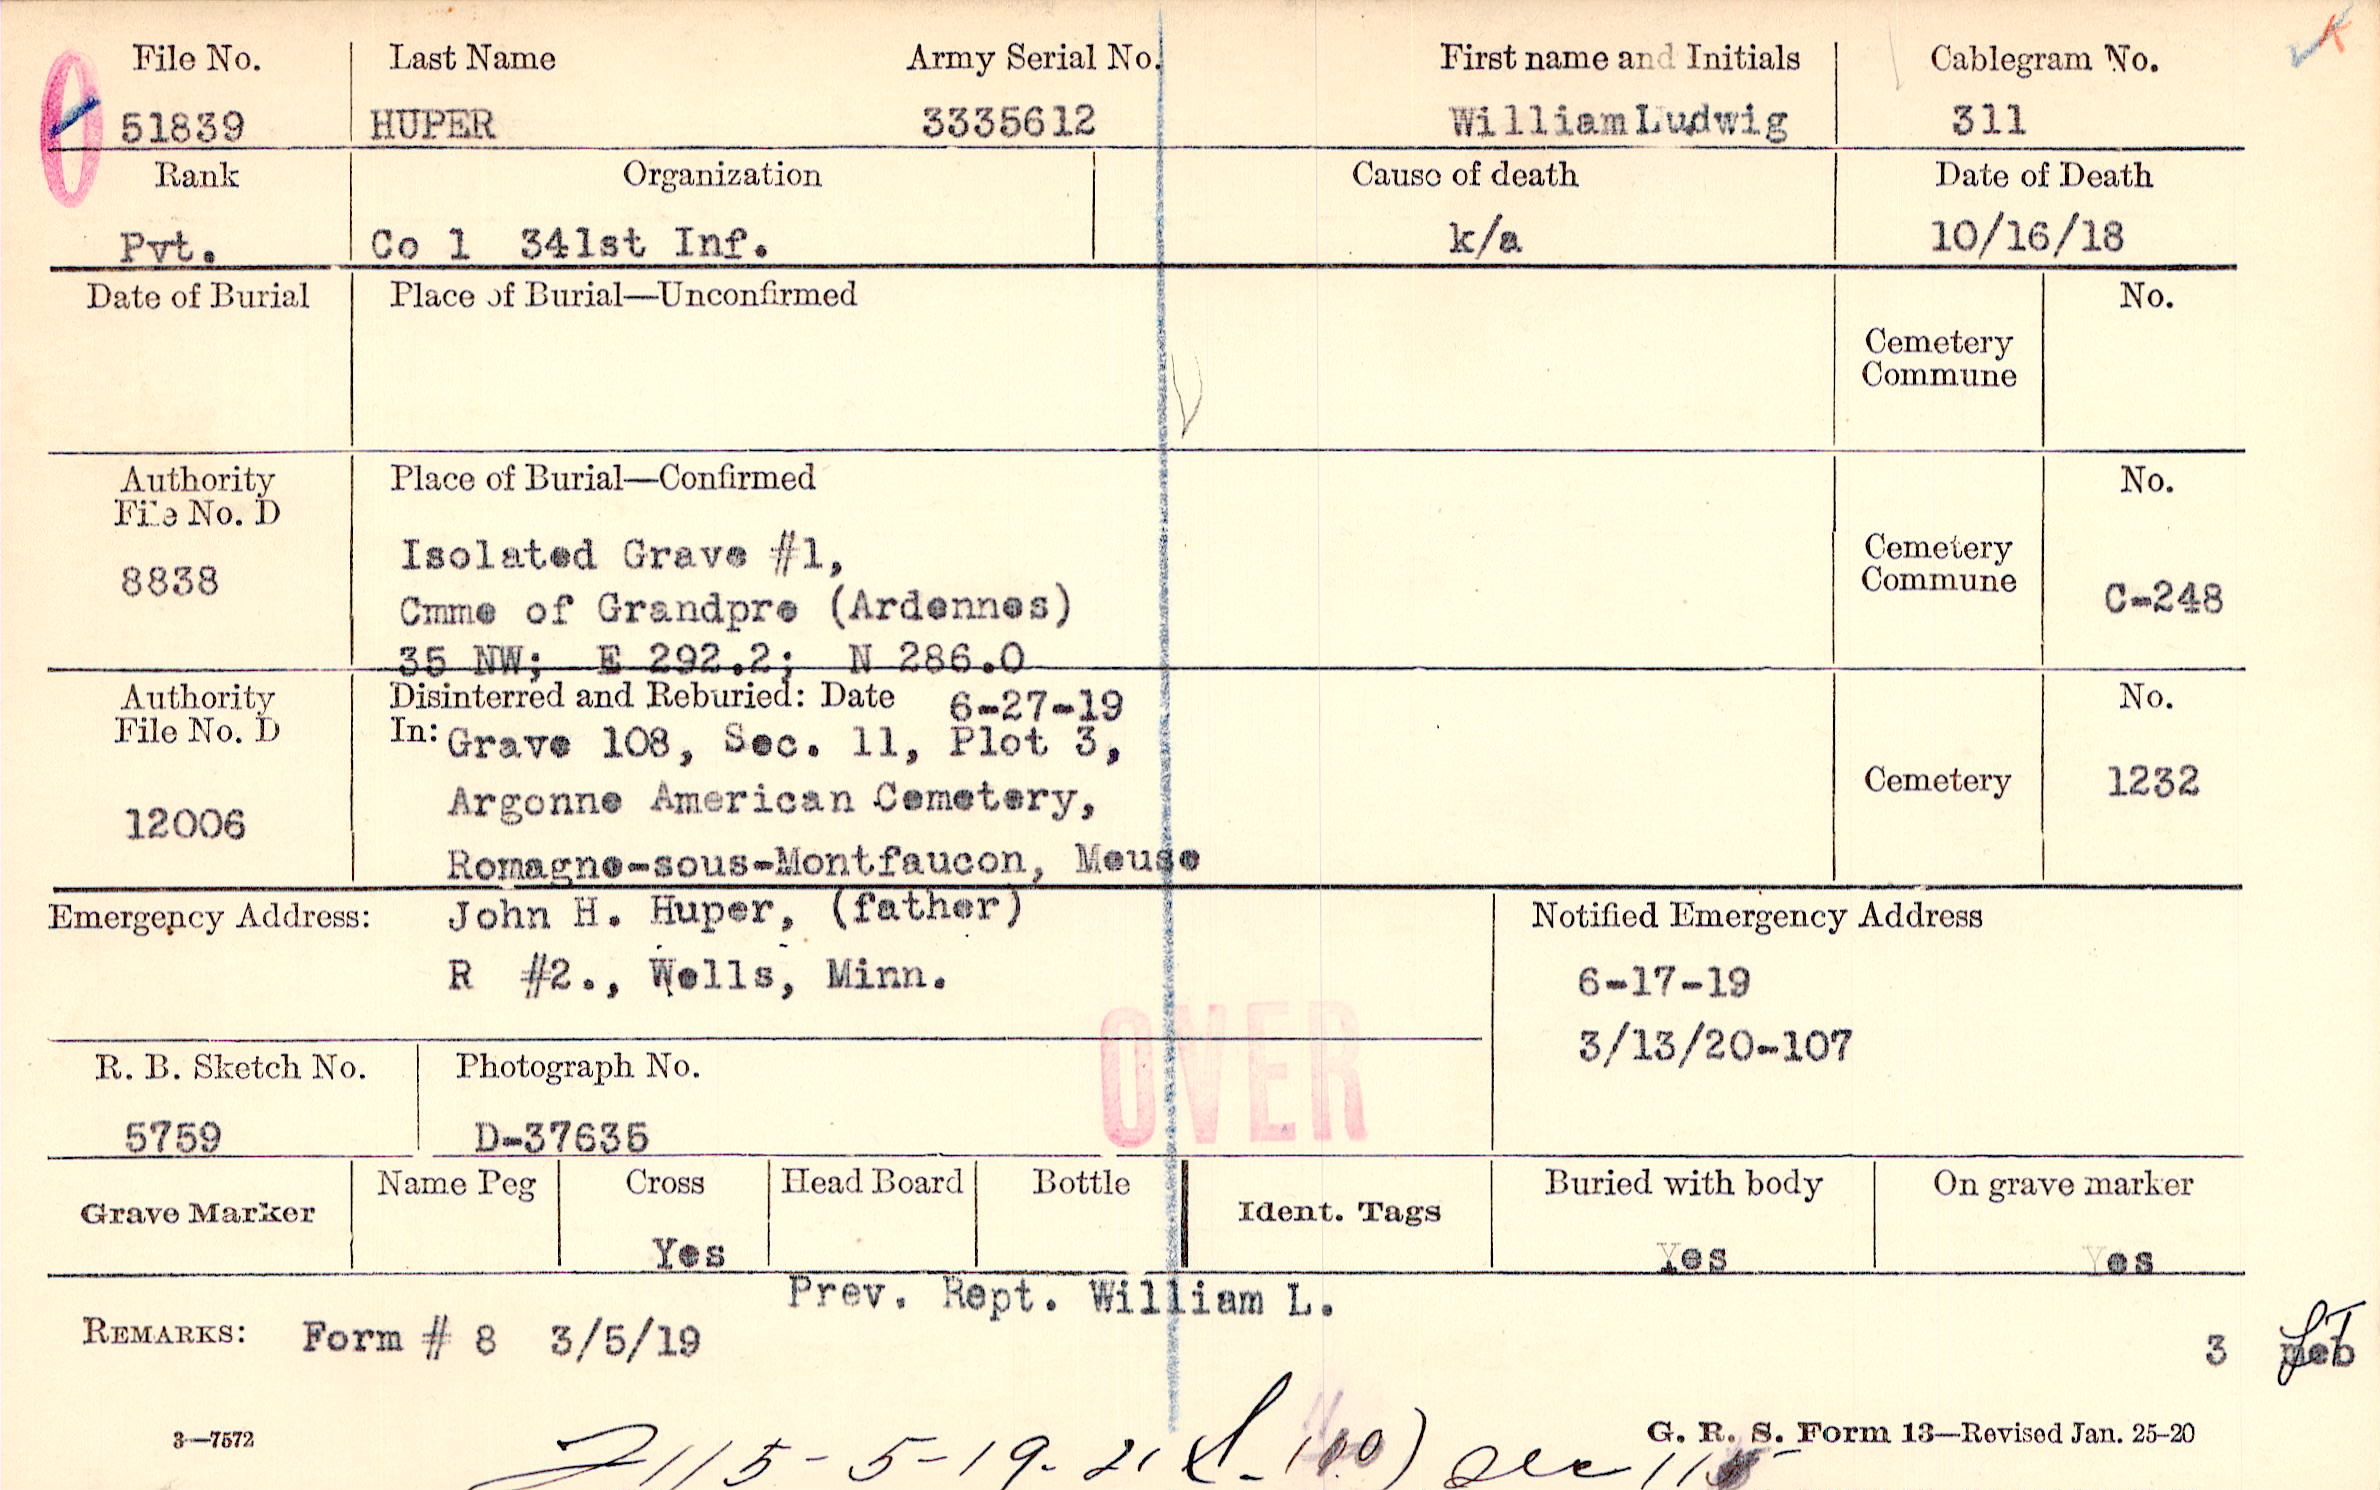 File No. Last Name Army Serial No. First name and Initials Cablegram No.
51839 HUPER 3335612 William Ludwig 311
Rank Organization Cause of death Date of Death
Pvt. Co 1 341st Inf. k/a 10/16/18
Date of Burial Place of Burial—Unconfirmed No.
Cemetery
Commune
Authority Place of Burial—Confirmed No.
File No. D
8838
Isolated Grave #1,
Cmme of Grandpre (Ardennes)
35 NW; E 292.2; N 286.0
Cemetery
Commune
C-248
Authority Disinterred and Reburied: Date 6-27-19 No.
File No. D In: Grave 108, Sec. 11, Plot 3,
12006 Argonne American Cemetery, Cemetery 1232
Romagne-sous-Montfaucon, Meuse
Emergency Address: John H. Huper, (father) Notified Emergency Address
R #2., Wells, Minn. 6-17-19
OVER 3/13/20-107
R. B. Sketch No. Photograph No.
5759 D-37635
Grave Marker Name Peg Cross Head Board Bottle Ident. Tags Buried with body On grave marker
Yes Yes Yes
Prev. Rept. William L.
REMARKS: Form # 8 3/5/19 3 meb
3—7572 G. R. S. Form 13—Revised Jan. 25-20
115-5-19-21